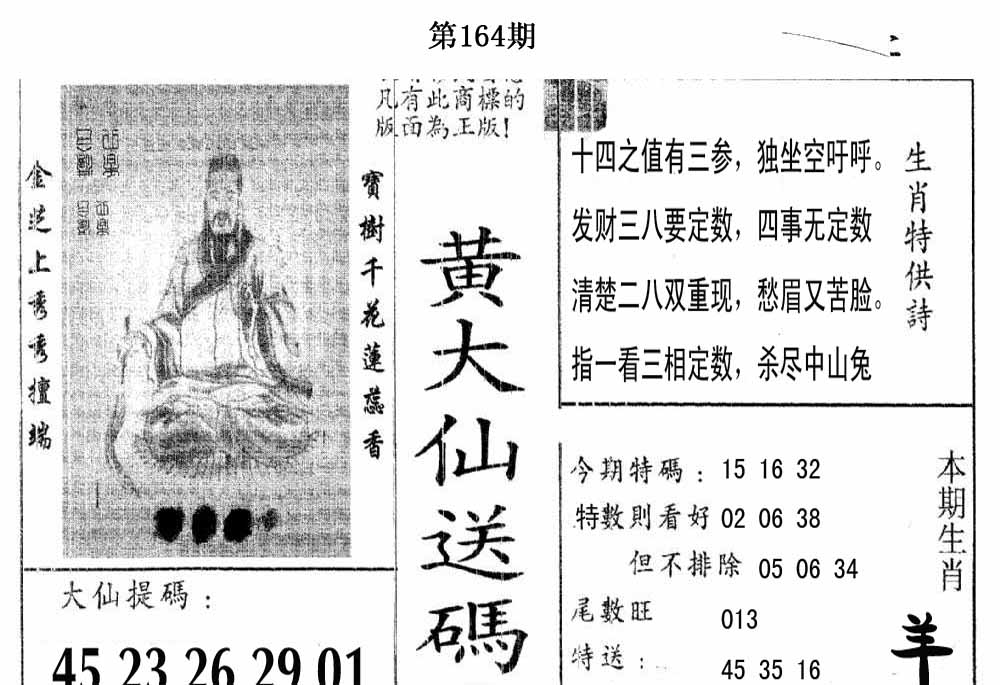 第164期
凡有此商標的
版面為正版!
寶樹千花蓮蕊香
黄大仙送碼
大仙提碼：
45 23 26 29 01
生肖特供詩
十四之值有三参，独坐空吁呼。
发财三八要定数，四事无定数
清楚二八双重现，愁眉又苦脸。
指一看三相定数，杀尽中山兔
今期特碼：15 16 32
特數則看好 02 06 38
但不排除 05 06 34
尾數旺 013
特送：45 35 16
本期生肖
羊